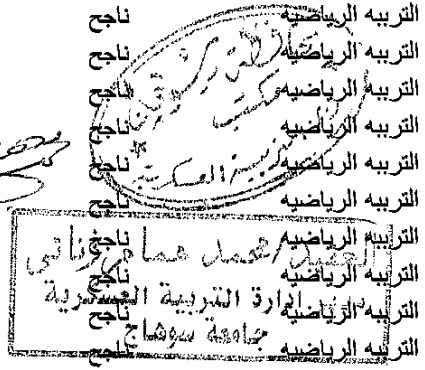 التربيه الرياضيه ناجح
التربيه الرياضيه ناجح
التربيه الرياضيه ناجح
التربيه الرياضيه ناجح
التربيه الرياضيه ناجح
التربيه الرياضيه ناجح
التربيه الرياضيه ناجح
التربيه الرياضيه ناجح
التربيه الرياضيه ناجح
التربيه الرياضيه ناجح
مكتب
التربية العسكرية
العقيد / محمد همام
مدير ادارة التربية العسكرية
جامعة سوهاج